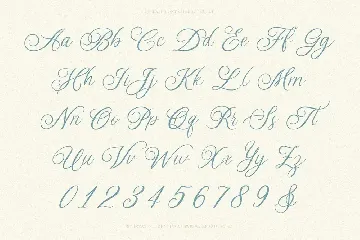 Aa Bb Cc Dd Ee Ff Gg
Hh Ii Jj Kk Ll Mm
Nn Oo Pp Qq Rr Ss Tt
Uu Vv Ww Xx Yy Zz
0 1 2 3 4 5 6 7 8 9 &